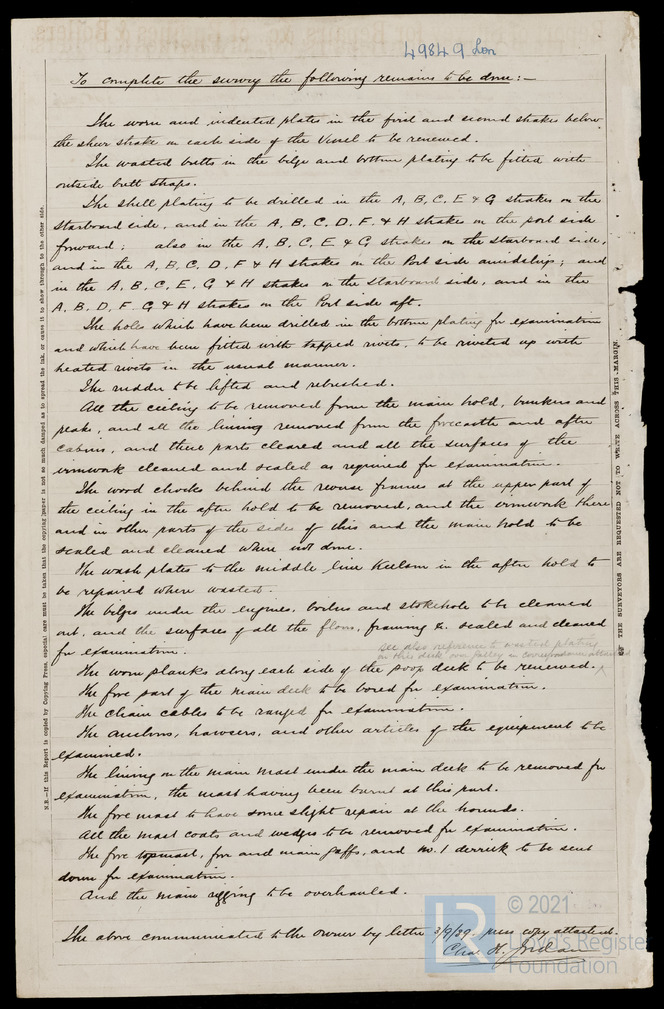 49849 Lon
To complete the survey the following remains to be done:—
The worn and indented plates in the first and second strakes below
the sheer strake on each side of the Vessel to be renewed.
The wasted butts in the bilge and bottom plating to be fitted with
outside butt straps.
The shell plating to be drilled in the A, B, C, E & G strakes on the
starboard side, and in the A, B, C, D, F, & H strakes on the port side
forward; also in the A, B, C, E & G strakes on the starboard side,
and in the A, B, C, D, F & H strakes on the Port side amidships; and
in the A, B, C, E, G & H strakes on the starboard side, and in the
A, B, D, F G & H strakes on the Port side aft.
The holes which have been drilled in the bottom plating for examination
and which have been fitted with tapped rivets, to be riveted up with
heated rivets in the usual manner.
The rudder to be lifted and rebushed.
All the ceiling to be removed from the main hold, bunkers and
peaks, and all the lining removed from the forecastle and after
cabins, and these parts cleared and all the surfaces of the
ironwork cleaned and scaled as required for examination.
The wood chocks behind the reverse frames at the upper part of
the ceiling in the after hold to be removed, and the ironwork there
and in other parts of the sides of this and the main hold to be
scaled and cleaned where not done.
The wash plates to the middle line Keelson in the after hold to
be repaired where wasted.
The bilges under the engines, boilers and stokehole to be cleaned
out, and the surfaces of all the floors, framing &c. scaled and cleaned
for examination.
see also reference to wasted plating
on this deck in galley in correspondence attached
The worn planks along each side of the poop deck to be renewed.
The fore part of the main deck to be bored for examination.
The chain cables to be ranged for examination.
The anchors, hawsers, and other articles of the equipment to be
examined.
The lining on the main mast under the main deck to be removed for
examination, the mast having been burnt at this part.
The fore mast to have some slight repair at the hounds.
All the mast coats and wedges to be removed for examination.
The fore topmast, fore and main gaffs, and No. 1 derrick to be sent
down for examination.
And the main rigging to be overhauled.
The above communicated to the owner by letter 3/9/89. press copy attached.
Chas. H. Jordan
N.B.—If this Report is copied by Copying Press, especial care must be taken that the copying paper is not so much damped as to spread the ink, or cause it to show through to the other side.
THE SURVEYORS ARE REQUESTED NOT TO WRITE ACROSS THIS MARGIN.
LR
© 2021
Lloyd's Register
Foundation